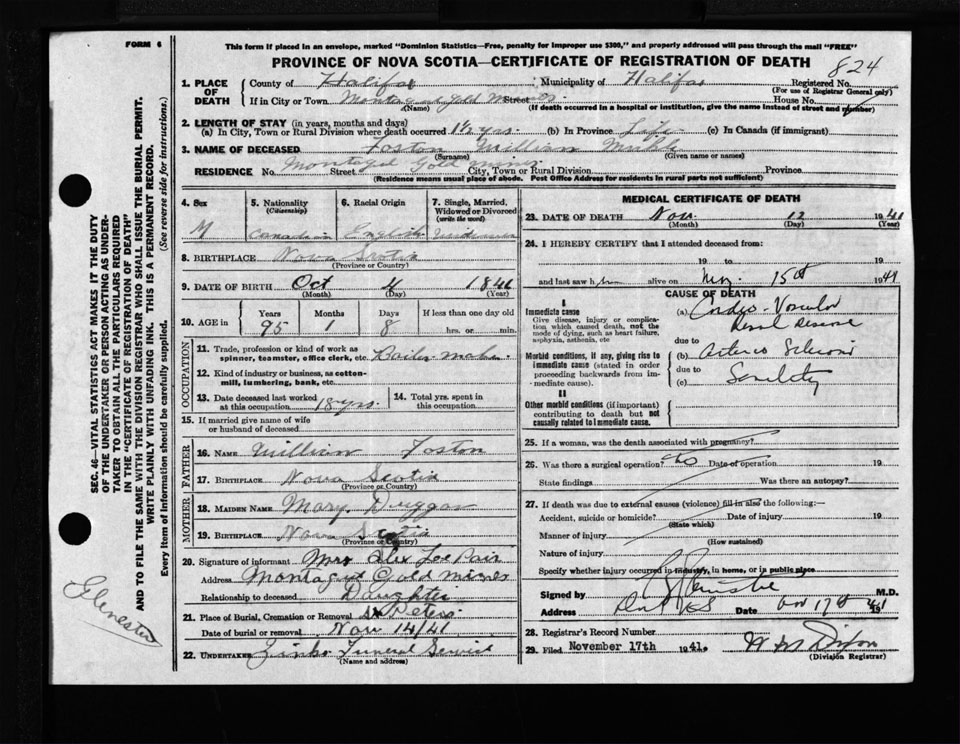 FORM 6
This form if placed in an envelope, marked "Dominion Statistics—Free, penalty for improper use $300," and properly addressed will pass through the mail "FREE"
PROVINCE OF NOVA SCOTIA—CERTIFICATE OF REGISTRATION OF DEATH
824
1. PLACE OF DEATH
County of Halifax Municipality of Halifax Registered No.
(For use of Registrar General only)
If in City or Town Street House No.
(Name) (If death occurred in a hospital or institution, give the name instead of street and number)
2. LENGTH OF STAY (in years, months and days)
(a) In City, Town or Rural Division where death occurred 1½ yrs. (b) In Province Life (c) In Canada (if immigrant)
3. NAME OF DECEASED Foston William
(Surname) (Given name or names)
RESIDENCE No. Street City, Town or Rural Division Province
(Residence means usual place of abode. Post Office Address for residents in rural parts not sufficient)
4. Sex
M
5. Nationality
(Citizenship)
Canadian
6. Racial Origin
English
7. Single, Married, Widowed or Divorced
(write the word)
8. BIRTHPLACE Nova Scotia
(Province or Country)
9. DATE OF BIRTH Oct 4 1846
(Month) (Day) (Year)
10. AGE in
Years Months Days If less than one day old
95 1 8 hrs. or min.
OCCUPATION
11. Trade, profession or kind of work as spinner, teamster, office clerk, etc. Boiler maker.
12. Kind of industry or business, as cotton-mill, lumbering, bank, etc.
13. Date deceased last worked at this occupation 18 yrs.
14. Total yrs. spent in this occupation
15. If married give name of wife or husband of deceased
FATHER
16. NAME William Foston
17. BIRTHPLACE Nova Scotia
(Province or Country)
MOTHER
18. MAIDEN NAME Mary Duggan
19. BIRTHPLACE Nova Scotia
(Province or Country)
20. Signature of informant Mrs Alex
Address Montague Gold mines
Relationship to deceased Daughter
21. Place of Burial, Cremation or Removal St Peters
Date of burial or removal Nov 14/41
22. UNDERTAKER Funeral Service
(Name and address)
MEDICAL CERTIFICATE OF DEATH
23. DATE OF DEATH Nov. 12 1941
(Month) (Day) (Year)
24. I HEREBY CERTIFY that I attended deceased from
19 to 19
and last saw him alive on 15th 1941
CAUSE OF DEATH
I
Immediate cause
Give disease, injury or complication which caused death, not the mode of dying, such as heart failure, asphyxia, asthenia, etc
(a) Cardio-Vascular
Renal Disease
due to
Morbid conditions, if any, giving rise to immediate cause (stated in order proceeding backwards from immediate cause).
(b) Arterio Sclerosis
due to
(c) Senility
II
Other morbid conditions (if important) contributing to death but not causally related to immediate cause.
25. If a woman, was the death associated with pregnancy?
26. Was there a surgical operation? No Date of operation 19
State findings Was there an autopsy?
27. If death was due to external causes (violence) fill in also the following:—
Accident, suicide or homicide? Date of injury 19
(State which)
Manner of injury
(How sustained)
Nature of injury
Specify whether injury occurred in industry, in home, or in public place
Signed by M.D.
Address Date Nov 17th 1941
28. Registrar's Record Number
29. Filed November 17th 1941.
(Division Registrar)
SEC. 46—VITAL STATISTICS ACT MAKES IT THE DUTY
OF THE UNDERTAKER OR PERSON ACTING AS UNDER-
TAKER TO OBTAIN ALL THE PARTICULARS REQUIRED
IN THE "CERTIFICATE OF REGISTRATION OF DEATH"
AND TO FILE THE SAME WITH THE DIVISION REGISTRAR WHO SHALL ISSUE THE BURIAL PERMIT.
WRITE PLAINLY WITH UNFADING INK. THIS IS A PERMANENT RECORD.
Every item of Information should be carefully supplied. (See reverse side for instructions.)